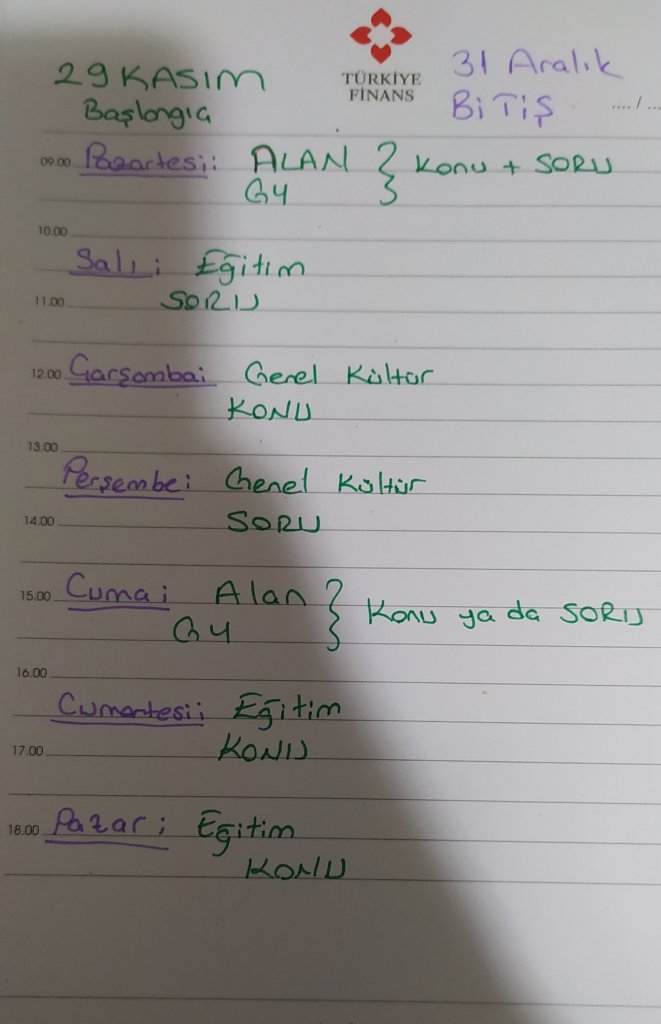 29 KASIM
Başlangıç
TÜRKİYE
FİNANS
31 Aralık
BİTİŞ
..... / ...
09.00 Pazartesi: ALAN } Konu + SORU
GY
10.00
Salı: Eğitim
11.00 SORU
12.00 Çarşamba: Genel Kültür
KONU
13.00
Perşembe: Genel Kültür
14.00 SORU
15.00 Cuma: Alan } Konu ya da SORU
GY
16.00
Cumartesi: Eğitim
17.00 KONU
18.00 Pazar: Eğitim
KONU